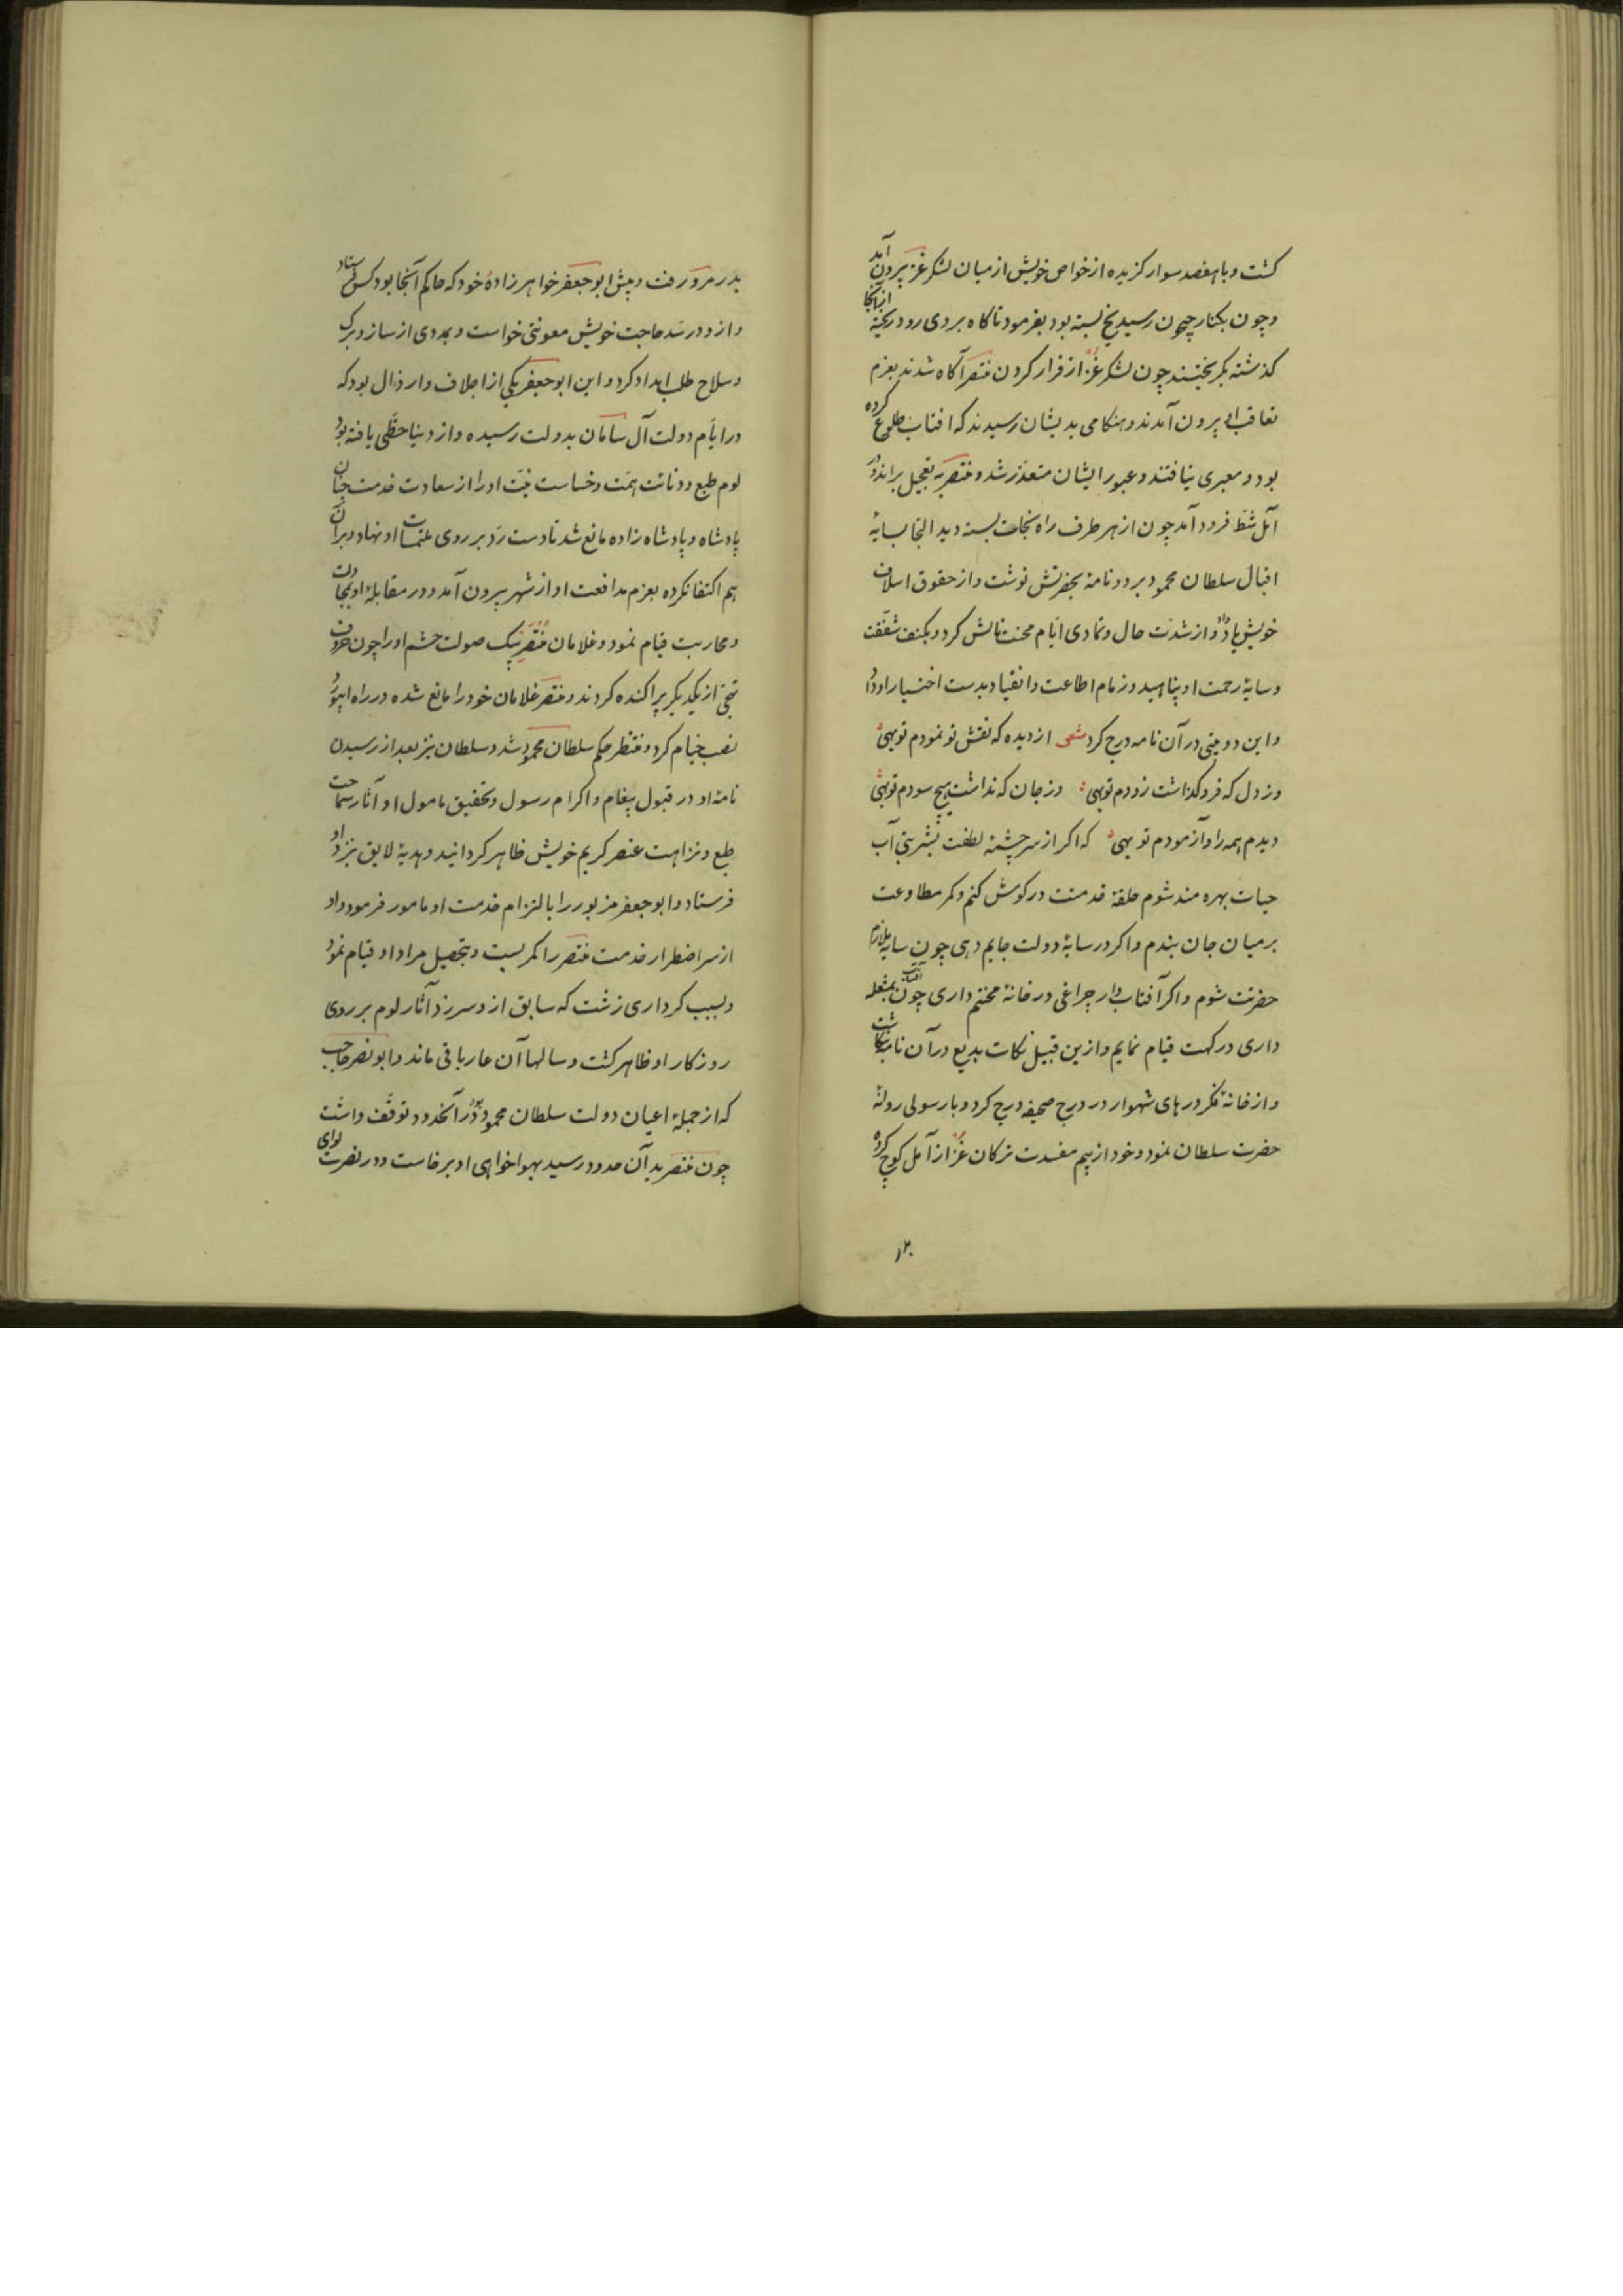 کشت و با هفصد سوار کزیده از خواص خویش از میان لشکر غز بیرون آمد
و چون بکنار جیحون رسید یخ بسته بود بفرمود تا کاه بر روی رود ریخته از آنجا
کذشته بکریختند چون لشکر غز از فرار کردن منتصر آکاه شدند بعزم
تعاقب او بیرون آمدند و هنکامی بدیشان رسیدند که افتاب طلوع کرده
بود و معبری نیافتند و عبور ایشان متعذر شد و منتصر به تعجیل براند و در
آمل شط فرود آمد چون از هر طرف راه نجات بسته دید التجا بسایهٔ
اقبال سلطان محمود برد و نامهٔ بحضرتش نوشت و از حقوق اسلاف
خویش یاد داد و از شدت حال و تمادی ایام محنت نالش کرد و بکنف شفقت
و سایهٔ رحمت او پناهید و زمام اطاعت و انقیاد بدست اختیار او داد
و این دو بیتی در آن نامه درج کرد شعر از دیده که نقش تو نمودم تو بهی
وز دل که فرو کذاشت زودم تو بهی وز جان که نداشت هیچ سودم تو بهی
دیدم همه را و آزمودم تو بهی که اکر از سرچشمهٔ لطفت بشربتی آب
حیات بهره مند شوم حلقهٔ خدمتت در کوش کنم و کمر مطاوعت
بر میان جان بندم و اکر در سایهٔ دولت جایم دهی چون سایه ملازم
حضرتت شوم و اکر آفتاب وار چراغی در خانهٔ محنتم داری چون آفتاب بمشعله
داری درکهت قیام نمایم و ازین قبیل نکات بدیع در آن نامه نکاشت
و از خانهٔ فکر درهای شهوار در درج صحیفه درج کرد و با رسولی روانهٔ
حضرت سلطان نمود و خود از بیم مفسدت ترکان غز از آمل کوچ کرده
بدر مرو رفت و پیش ابو جعفر خواهرزادهٔ خود که حاکم آنجا بود کس فرستاد
و ازو در سد حاجت خویش معونتی خواست و بمددی از ساز و برک
و سلاح طلب امداد کرد و این ابو جعفر یکی از اجلاف و ارذال بود که
در ایام دولت آل سامان بدولت رسیده و از دنیا حظی یافته بود
لوم طبع و دنائت همت و خساست نیت او را از سعادت خدمت چنان
پادشاه و پادشاه زاده مانع شد تا دست رد بر روی ملتمسات او نهاد و بر آن
هم اکتفا نکرده بعزم مدافعت او از شهر بیرون آمد و در مقابلهٔ او بمجادلت
و محاربت قیام نمود و غلامان منتصر بیک صولت حشم او را چون حروف
تهجی از یکدیکر پراکنده کردند و منتصر غلامان خود را مانع شده در راه ابیورد
نصب خیام کرد و منتظر حکم سلطان محمود شد و سلطان نیز بعد از رسیدن
نامهٔ او در قبول پیغام و اکرام رسول و تحقیق مامول او آثار سماحت
طبع و نزاهت عنصر کریم خویش ظاهر کردانید و هدیهٔ لایق بنزد او
فرستاد و ابو جعفر مزبور را بالتزام خدمت او مامور فرمود و او
از سر اضطرار خدمت منتصر را کمر بست و بتحصیل مراد او قیام نمود
و بسبب کرداری زشت که سابق ازو سر زد آثار لوم بر روی
روزکار او ظاهر کشت و سالها آن عار باقی ماند و ابو نصر حاجب
که از جملهٔ اعیان دولت سلطان محمود بود در آنحدود توقف داشت
چون منتصر بدان حدود رسید بهواخواهی او برخاست و در نصرت لوای
۱۲۰